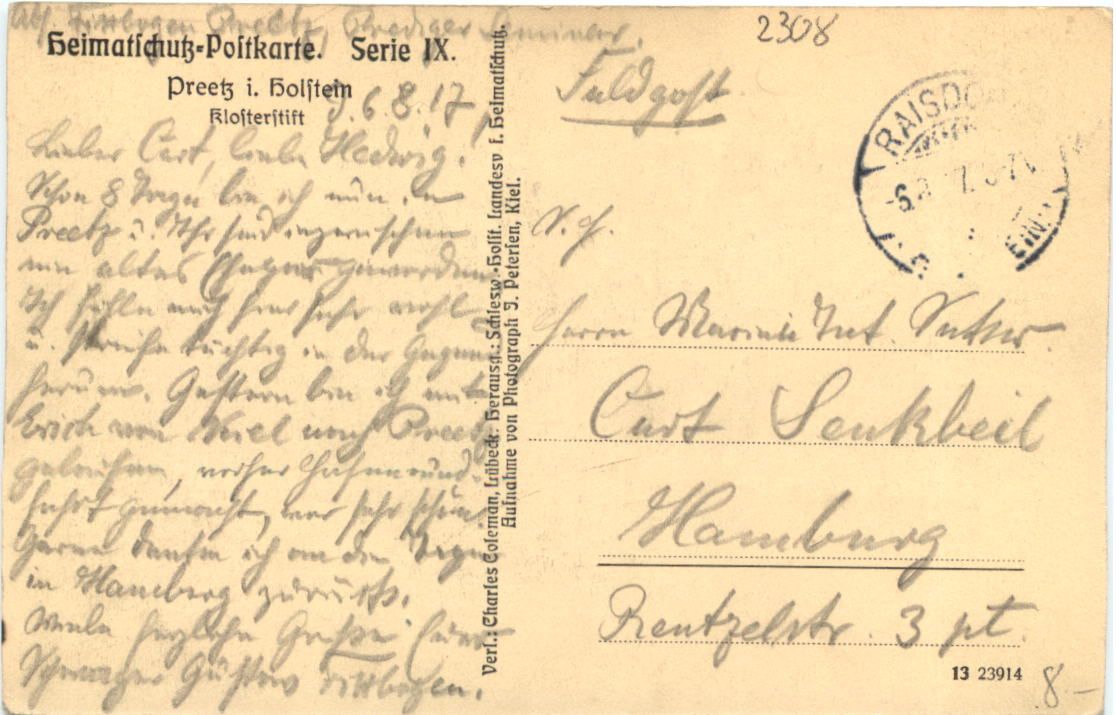 Abs. Fittbogen Preetz, Prediger Seminar.
2308
Heimatschutz-Postkarte. Serie IX.
Preetz i. Holstein
Klosterstift
d. 6. 8. 17.
Lieber Curt, liebe Hedwig!
Schon 8 Tage bin ich nun in
Preetz u. Ihr seid inzwischen
ein altes Ehepaar geworden.
Ich fühle mich hier sehr wohl
u. streife tüchtig in der Gegend
herum. Gestern bin ich mit
Erich von Kiel nach Preetz
gelaufen, vorher Hafenrund-
fahrt gemacht, war sehr schön.
Gerne denke ich an die Tage
in Hamburg zurück.
Viele herzliche Grüße Euer
Schwager Gustav Fittbogen.
Verl.: Charles Coleman, Lübeck. Herausg.: Schlesw.-Holst. Landesv f. Heimatschutz.
Aufnahme von Photograph J. Petersen, Kiel.
Feldpost
RAISDO
S. H.
Herrn Marine Int.
Curt Senkbeil
Hamburg
Rentzelstr. 3 pt.
13 23914
8.-